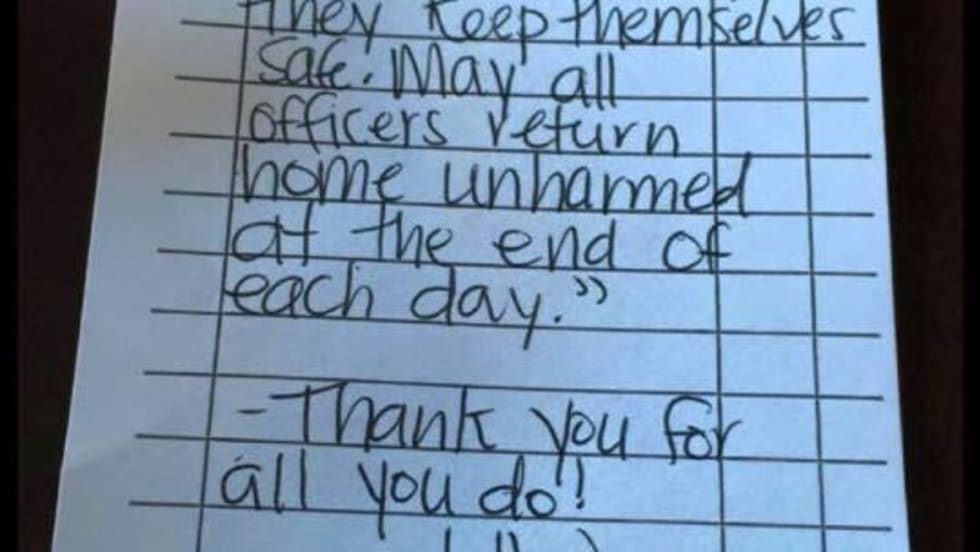 they keep themselves
safe. May all
officers return
home unharmed
at the end of
each day."
-Thank you for
all you do!